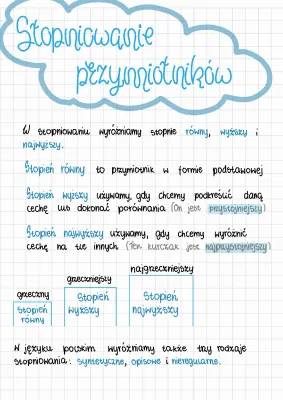 Stopniowanie
przymiotników
W stopniowaniu wyróżniamy stopnie równy, wyższy i
najwyższy.
Stopień równy to przymiotnik w formie podstawowej
Stopień wyższy używamy, gdy chcemy podkreślić daną
cechę lub dokonać porównania (On jest przystojniejszy)
Stopień najwyższy używamy, gdy chcemy wyróżnić
cechę na tle innych (Ten kurczak jest najprzystojniejszy)
najgrzeczniejszy
grzeczniejszy
grzeczny
Stopień równy
Stopień wyższy
Stopień najwyższy
W języku polskim wyróżniamy także trzy rodzaje
stopniowania: syntetyczne, opisowe i nieregularne.